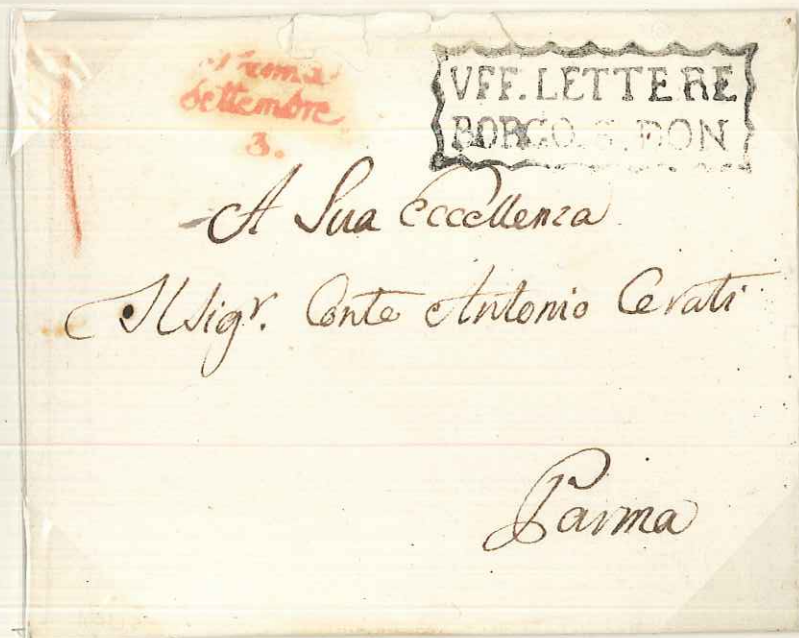 Parma
Settembre
3.
VFF. LETTERE
BORGO. S. DON
A Sua Eccellenza
Il Sigr. Conte Antonio Cerati
Parma